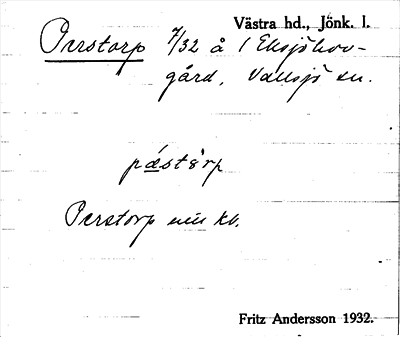 Västra hd., Jönk. l.
Perstorp 7/32 å 1 Eksjöhov-
gård, Vallsjö sn.
pæstörp
Perstorp enl. kb.
Fritz Andersson 1932.